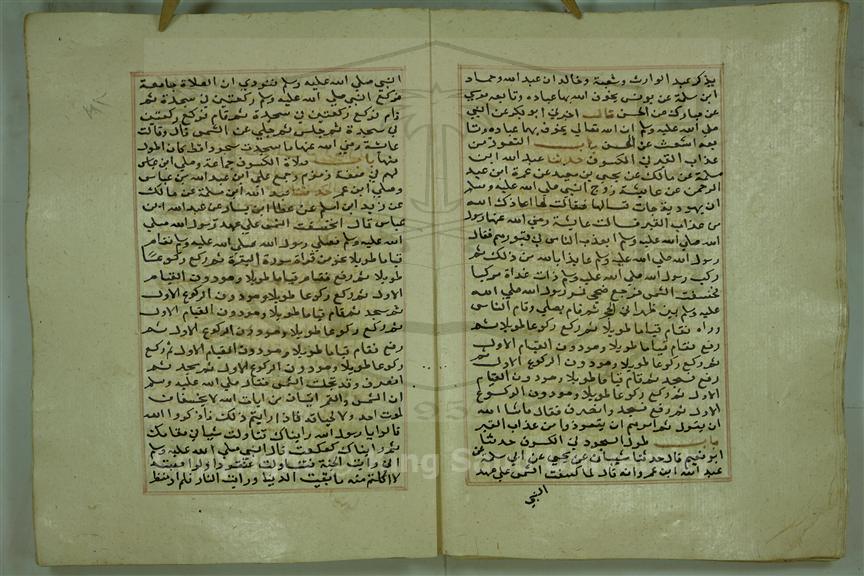 يذكر عبد الوارث وشعبة وخالد ان عبد الله وحماد
ابن سلمة عن يونس يخوف الله بهما عباده وتابعه موسي
عن مبارك عن الحسن قال اخبرني ابو بكرة عن النبي
صلي الله عليه وسلم ان الله تعالي يخوف بهما عباده وتا
بعه اشعث عن الحسن باب التعوذ من
عذاب القبر في الكسوف حدثنا عبد الله ابن
مسلمة عن مالك عن يحيي بن سعيد عن عمرة ابن عبد
الرحمن عن عايشة زوج النبي صلي الله عليه وسلم
ان يهودية جات تسالها فقالت لها اعاذك الله
من عذاب القبر فسالت عايشة رضي الله عنها رسول
الله صلي الله عليه وسلم ايعذب الناس في قبورهم فقال
رسول الله صلي الله عليه وسلم عايذا بالله من ذلك ثم
ركب رسول الله صلي الله عليه وسلم ذات غداة مركبا
فخسفت الشمس فرجع ضحي فمر رسول الله صلي الله
عليه وسلم بين ظهراني الحجر ثم قام يصلي وقام الناس
وراه فقام قياما طويلا ثم ركع ركوعا طويلا ثم
رفع فقام قياما طويلا وهو دون القيام الاول
ثم ركع ركوعا طويلا وهو دون الركوع الاول ثم
رفع فسجد ثم قام قياما طويلا وهو دون القيام
الاول ثم ركع ركوعا طويلا وهو دون الركوع
الاول ثم رفع فسجد وانصرف فقال ماشا الله
ان يقول ثم امرهم ان يتعوذوا من عذاب القبر
باب طول السجود في الكسوف حدثنا
ابو نعيم قال حدثنا شيبان عن يحيي عن ابي سلمة عن
عبد الله ابن عمرو انه قال لما كسفت الشمس علي عهد
النبي
النبي صلي الله عليه وسلم فنودي ان الصلاة جامعة
فركع النبي صلي الله عليه وسلم ركعتين في سجدة ثم
قام فركع ركعتين في سجدة ثم قام فركع ركعتين
في سجدة ثم جلس ثم جلي عن الشمس قال وقالت
عايشة رضي الله عنها ما سجدت سجودا قط كان اطول
منها باب صلاة الكسوف جماعة وصلي ابن عباس
لهم في صفة زمزم وجمع علي ابن عبد الله بن عباس
وصلي ابن عمر حدثنا عبد الله ابن مسلمة عن مالك
عن زيد ابن اسلم عن عطا ابن يسار عن عبد الله ابن
عباس قال انخسفت الشمس علي عهد رسول الله صلي
الله عليه وسلم فصلي رسول الله صلي الله عليه وسلم فقام
قياما طويلا نحو من قراة سورة البقرة ثم ركع ركوعا
طويلا ثم رفع فقام قياما طويلا وهو دون القيام
الاول ثم ركع ركوعا طويلا وهو دون الركوع الاول
ثم سجد ثم قام قياما طويلا وهو دون القيام الاول
ثم ركع ركوعا طويلا وهو دون الركوع الاول ثم
رفع فقام قياما طويلا وهو دون القيام الاول ثم ركع
ركوعا طويلا وهو دون الركوع الاول ثم سجد ثم
انصرف وقد تجلت الشمس فقال صلي الله عليه وسلم
ان الشمس والقمر ايتان من ايات الله لا يخسفان
لموت احد ولا لحياته فاذا رايتم ذلك فاذكروا الله
قالوا يا رسول الله رايناك تناولت شيا في مقامك
ثم رايناك كعكعت قال النبي صلي الله عليه وسلم
اني رايت الجنة فتناولت عنقودا ولو اصبته
لاكلتم منه ما بقيت الدنيا ورايت النار فلم ار منظر